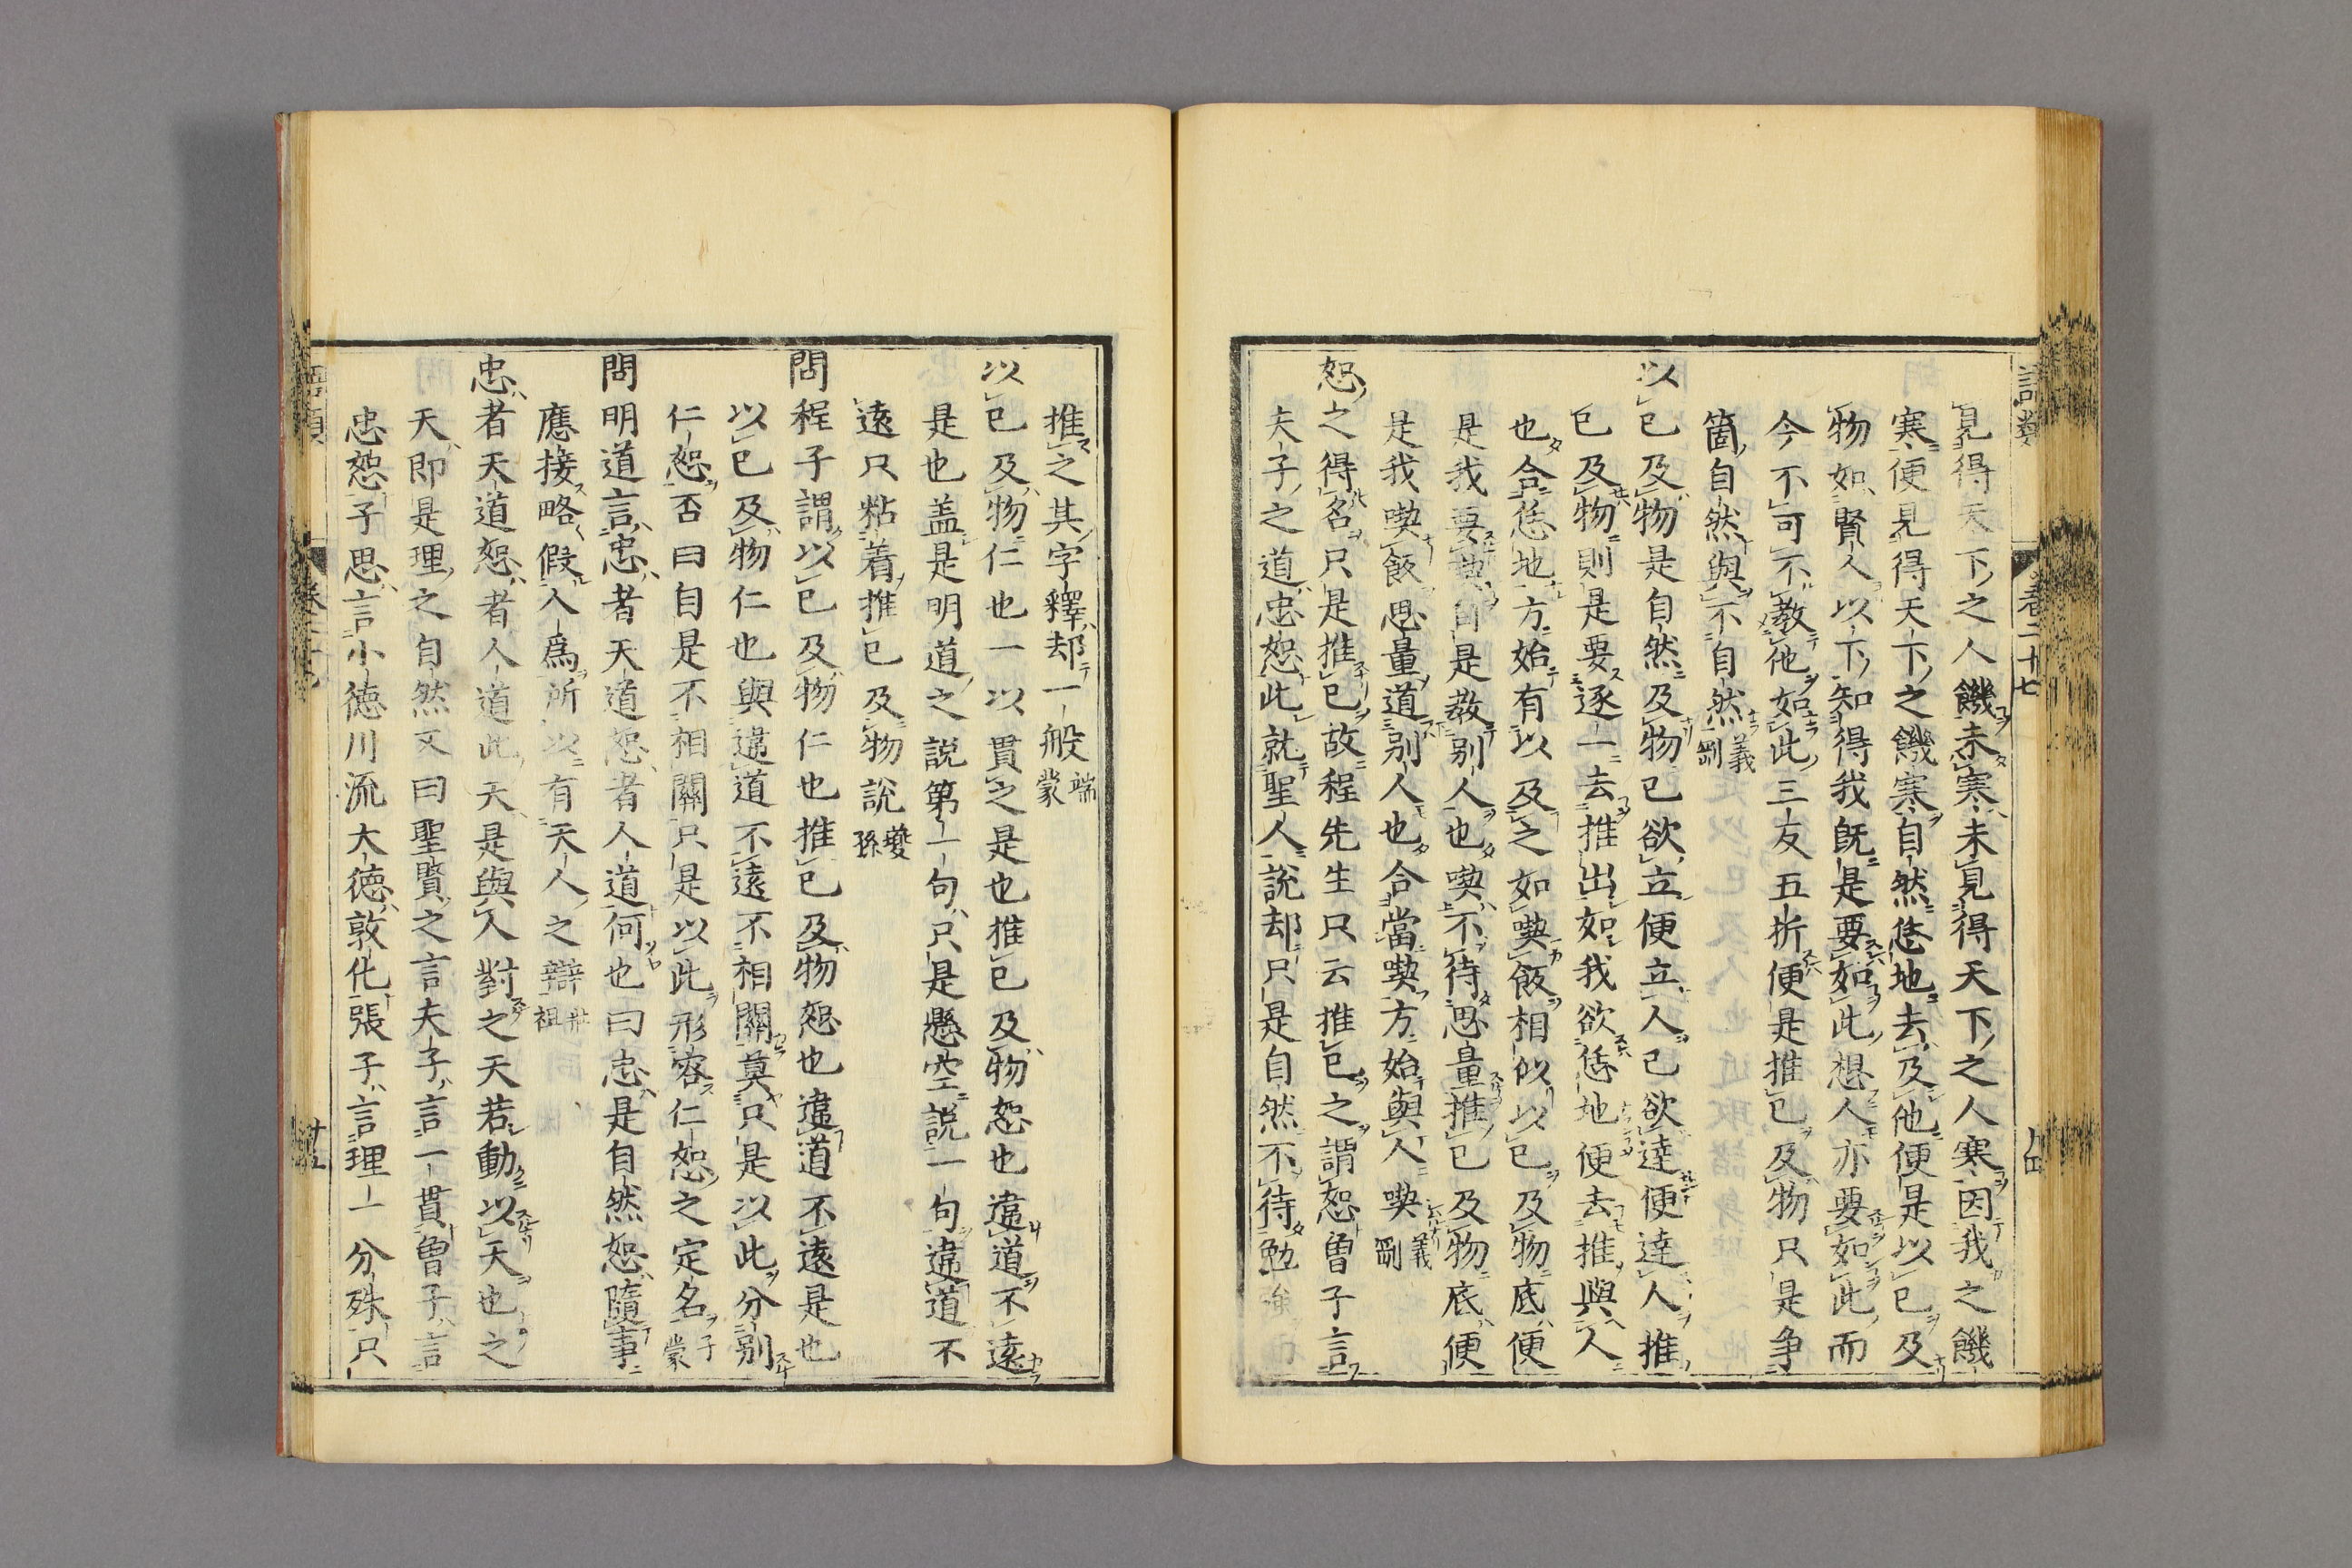 語類 卷二十七
見得天下之人饑未寒未見得天下之人寒因我之饑
寒便見得天下之饑寒自然恁地去及他便是以已及
物如賢人以下知得我旣是要如此想人亦要如此而
今不可不教他如此三友五折便是推已及物只是争
箇自然與不自然義剛
以已及物是自然及物已欲立便立人已欲達便達人推
已及物則是要逐一去推出如我欲恁地便去推與人
也合恁地方始有以及之如喫飯相似以已及物底便
是我要喫自是教别人也喫不待思量推已及物底便
是我喫飯思量道别人也合當喫方始與人喫義剛
恕之得名只是推已故程先生只云推已之謂恕曾子言
夫子之道忠恕此就聖人說却只是自然不待勉強
推之其字釋却一般端蒙
以已及物仁也一以貫之是也推已及物恕也違道不遠
是也盖是明道之說第一句只是懸空說一句違道不
遠只粘着推已及物說夔孫
問程子謂以已及物仁也推已及物恕也違道不遠是也
以已及物仁也與違道不遠不相關莫只是以此分别
仁恕否曰自是不相關只是以此形容仁恕之定名子蒙
問明道言忠者天道恕者人道何也曰忠是自然恕隨事
應接略假人爲所以有天人之辯壯祖
忠者天道恕者人道此天是與人對之天若動以天也之
天即是理之自然又曰聖賢之言夫子言一貫曾子言
忠恕子思言小德川流大德敦化張子言理一分殊只